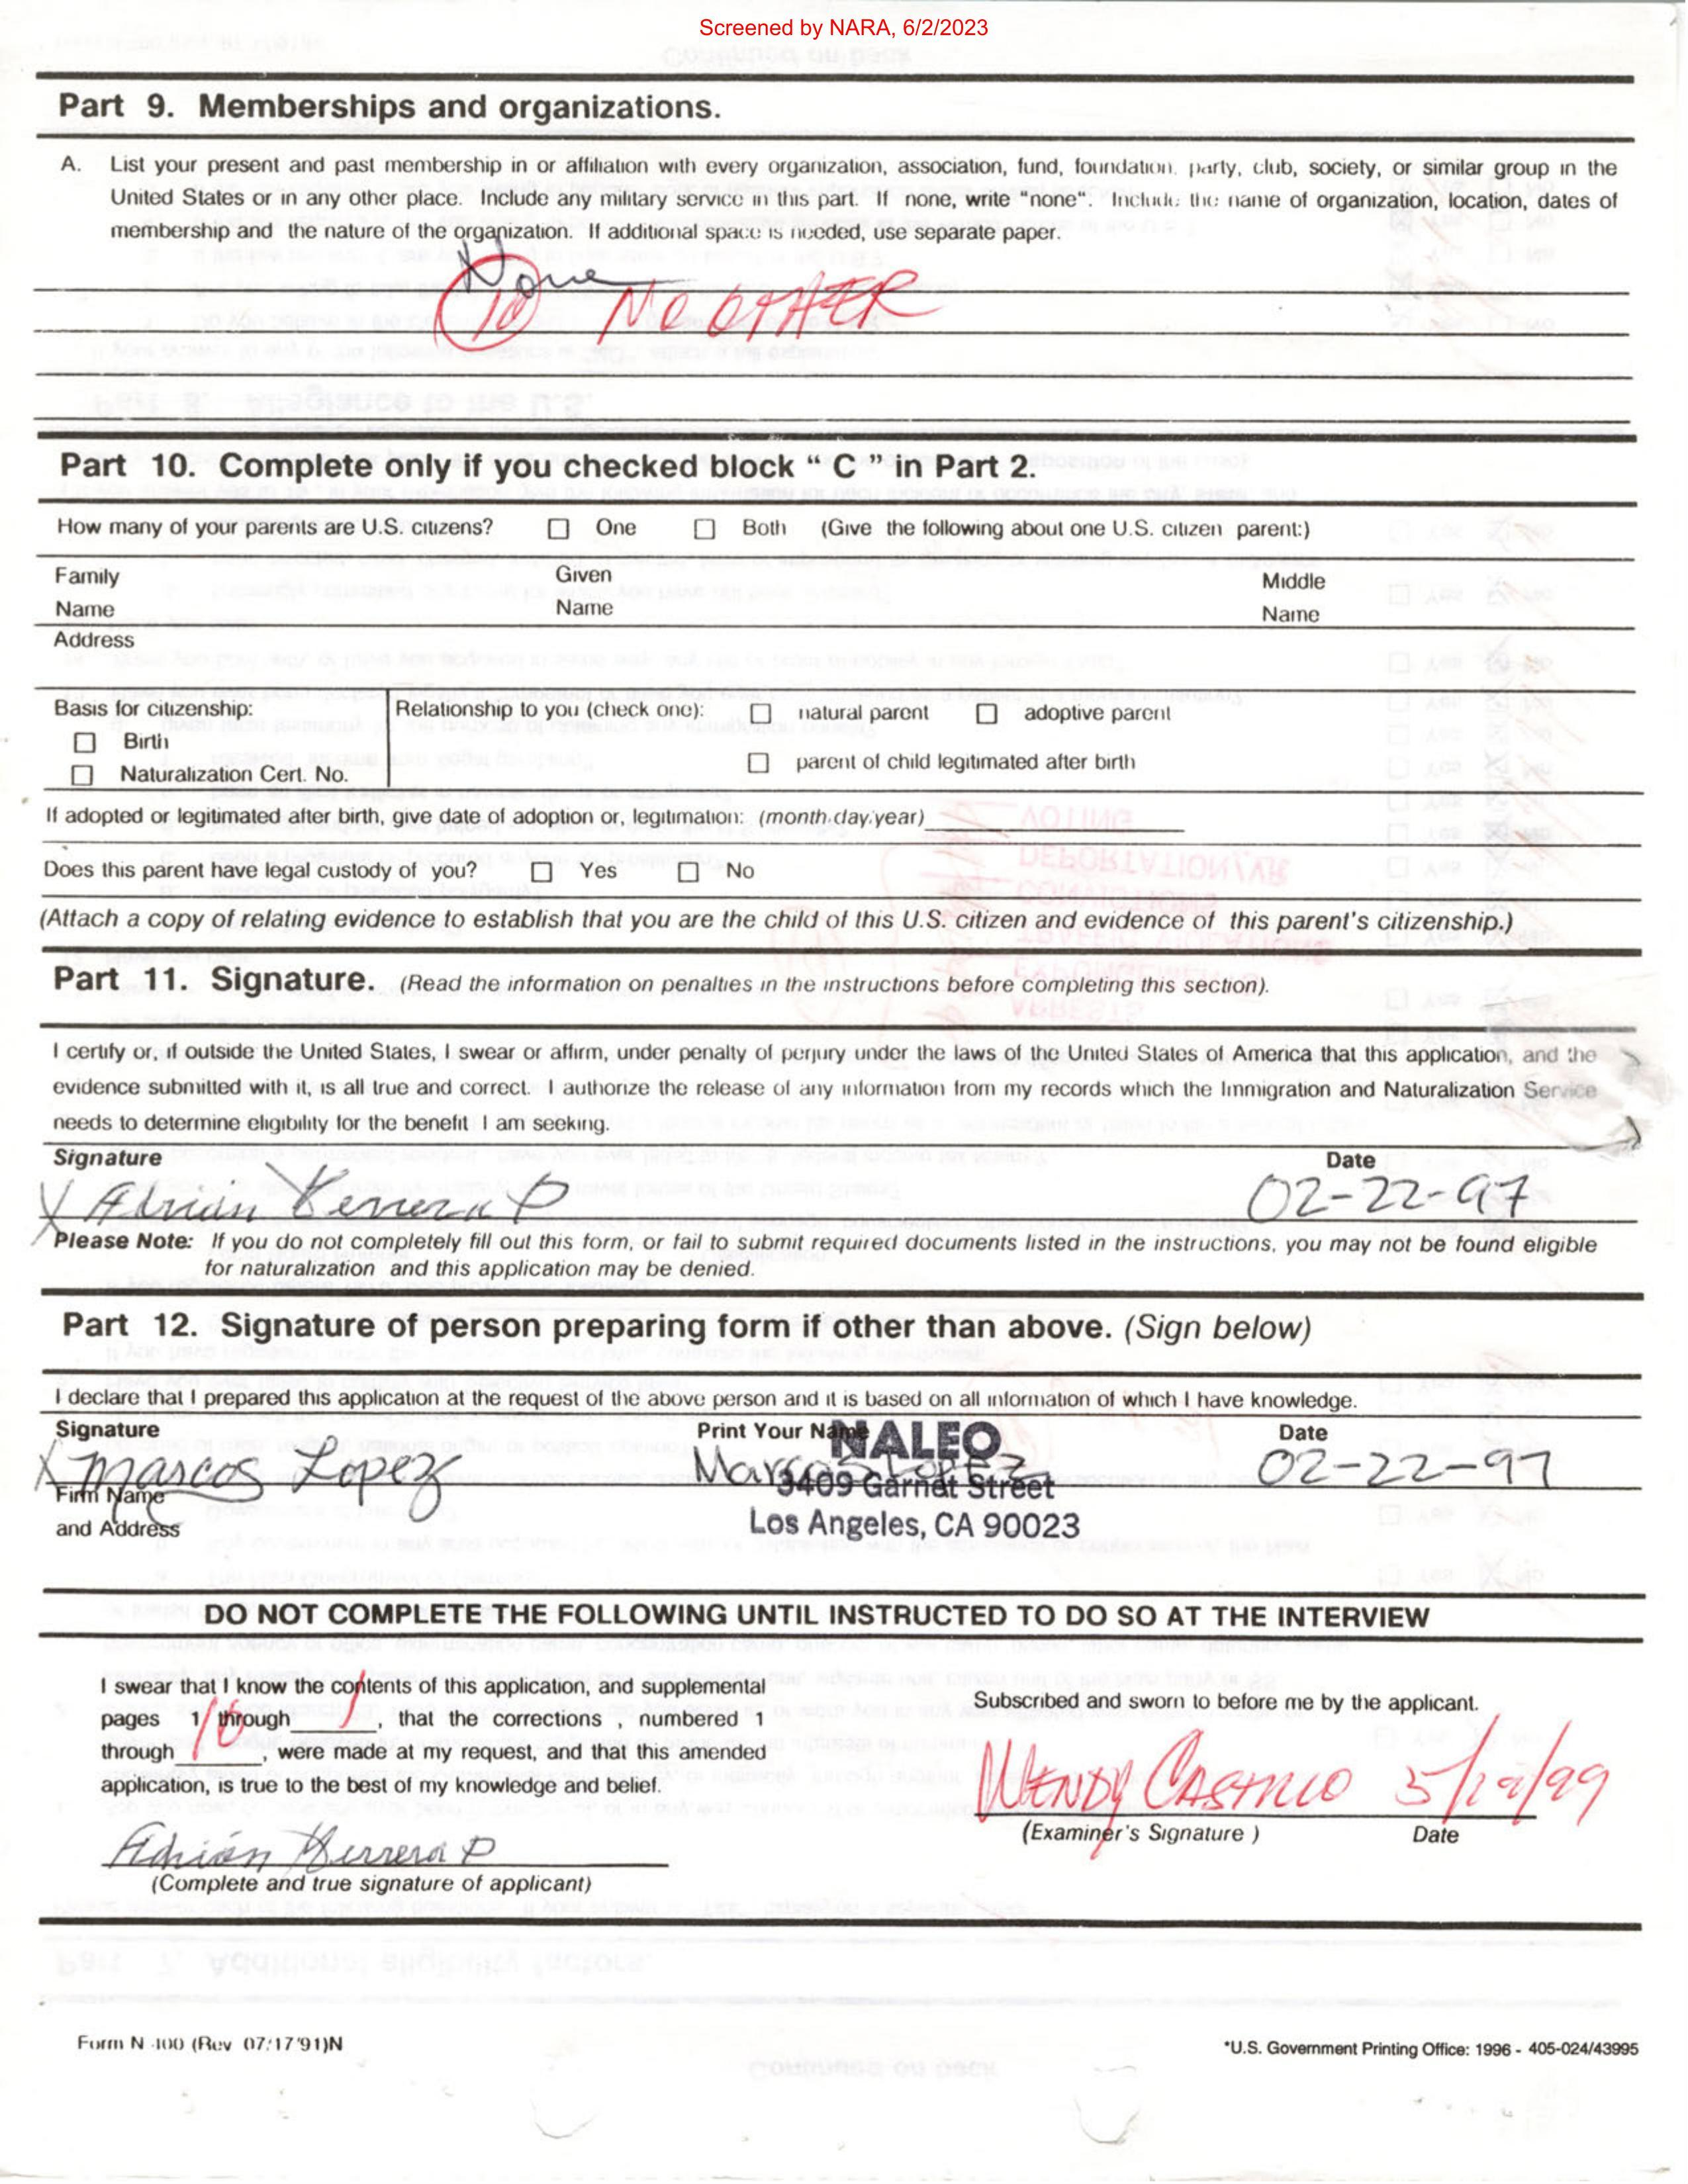 Screened by NARA, 6/2/2023
Part 9. Memberships and organizations.
A. List your present and past membership in or affiliation with every organization, association, fund, foundation, party, club, society, or similar group in the
United States or in any other place. Include any military service in this part. If none, write "none". Include the name of organization, location, dates of
membership and the nature of the organization. If additional space is needed, use separate paper.
None
10 NO OTHER
Part 10. Complete only if you checked block " C " in Part 2.
How many of your parents are U.S. citizens? ☐ One ☐ Both (Give the following about one U.S. citizen parent:)
Family Name Given Name Middle Name
Address
Basis for citizenship: Relationship to you (check one): ☐ natural parent ☐ adoptive parent
☐ Birth
☐ parent of child legitimated after birth
☐ Naturalization Cert. No.
If adopted or legitimated after birth, give date of adoption or, legitimation: (month,day,year)
Does this parent have legal custody of you? ☐ Yes ☐ No
(Attach a copy of relating evidence to establish that you are the child of this U.S. citizen and evidence of this parent's citizenship.)
Part 11. Signature. (Read the information on penalties in the instructions before completing this section).
I certify or, if outside the United States, I swear or affirm, under penalty of perjury under the laws of the United States of America that this application, and the
evidence submitted with it, is all true and correct. I authorize the release of any information from my records which the Immigration and Naturalization Service
needs to determine eligibility for the benefit I am seeking.
Signature Date
X Adrian Herrera P 02-22-97
Please Note: If you do not completely fill out this form, or fail to submit required documents listed in the instructions, you may not be found eligible
for naturalization and this application may be denied.
Part 12. Signature of person preparing form if other than above. (Sign below)
I declare that I prepared this application at the request of the above person and it is based on all information of which I have knowledge.
Signature Print Your Name NALEO Date
X Marcos Lopez Marcos Lopez 02-22-97
Firm Name 3409 Garnet Street
and Address Los Angeles, CA 90023
DO NOT COMPLETE THE FOLLOWING UNTIL INSTRUCTED TO DO SO AT THE INTERVIEW
I swear that I know the contents of this application, and supplemental
pages 1 through / , that the corrections , numbered 1
through 10 , were made at my request, and that this amended
application, is true to the best of my knowledge and belief.
Subscribed and sworn to before me by the applicant.
WENDY CASTILLO 5/12/99
(Examiner's Signature ) Date
Adrián Herrera P
(Complete and true signature of applicant)
Form N-400 (Rev 07/17/91)N
*U.S. Government Printing Office: 1996 - 405-024/43995